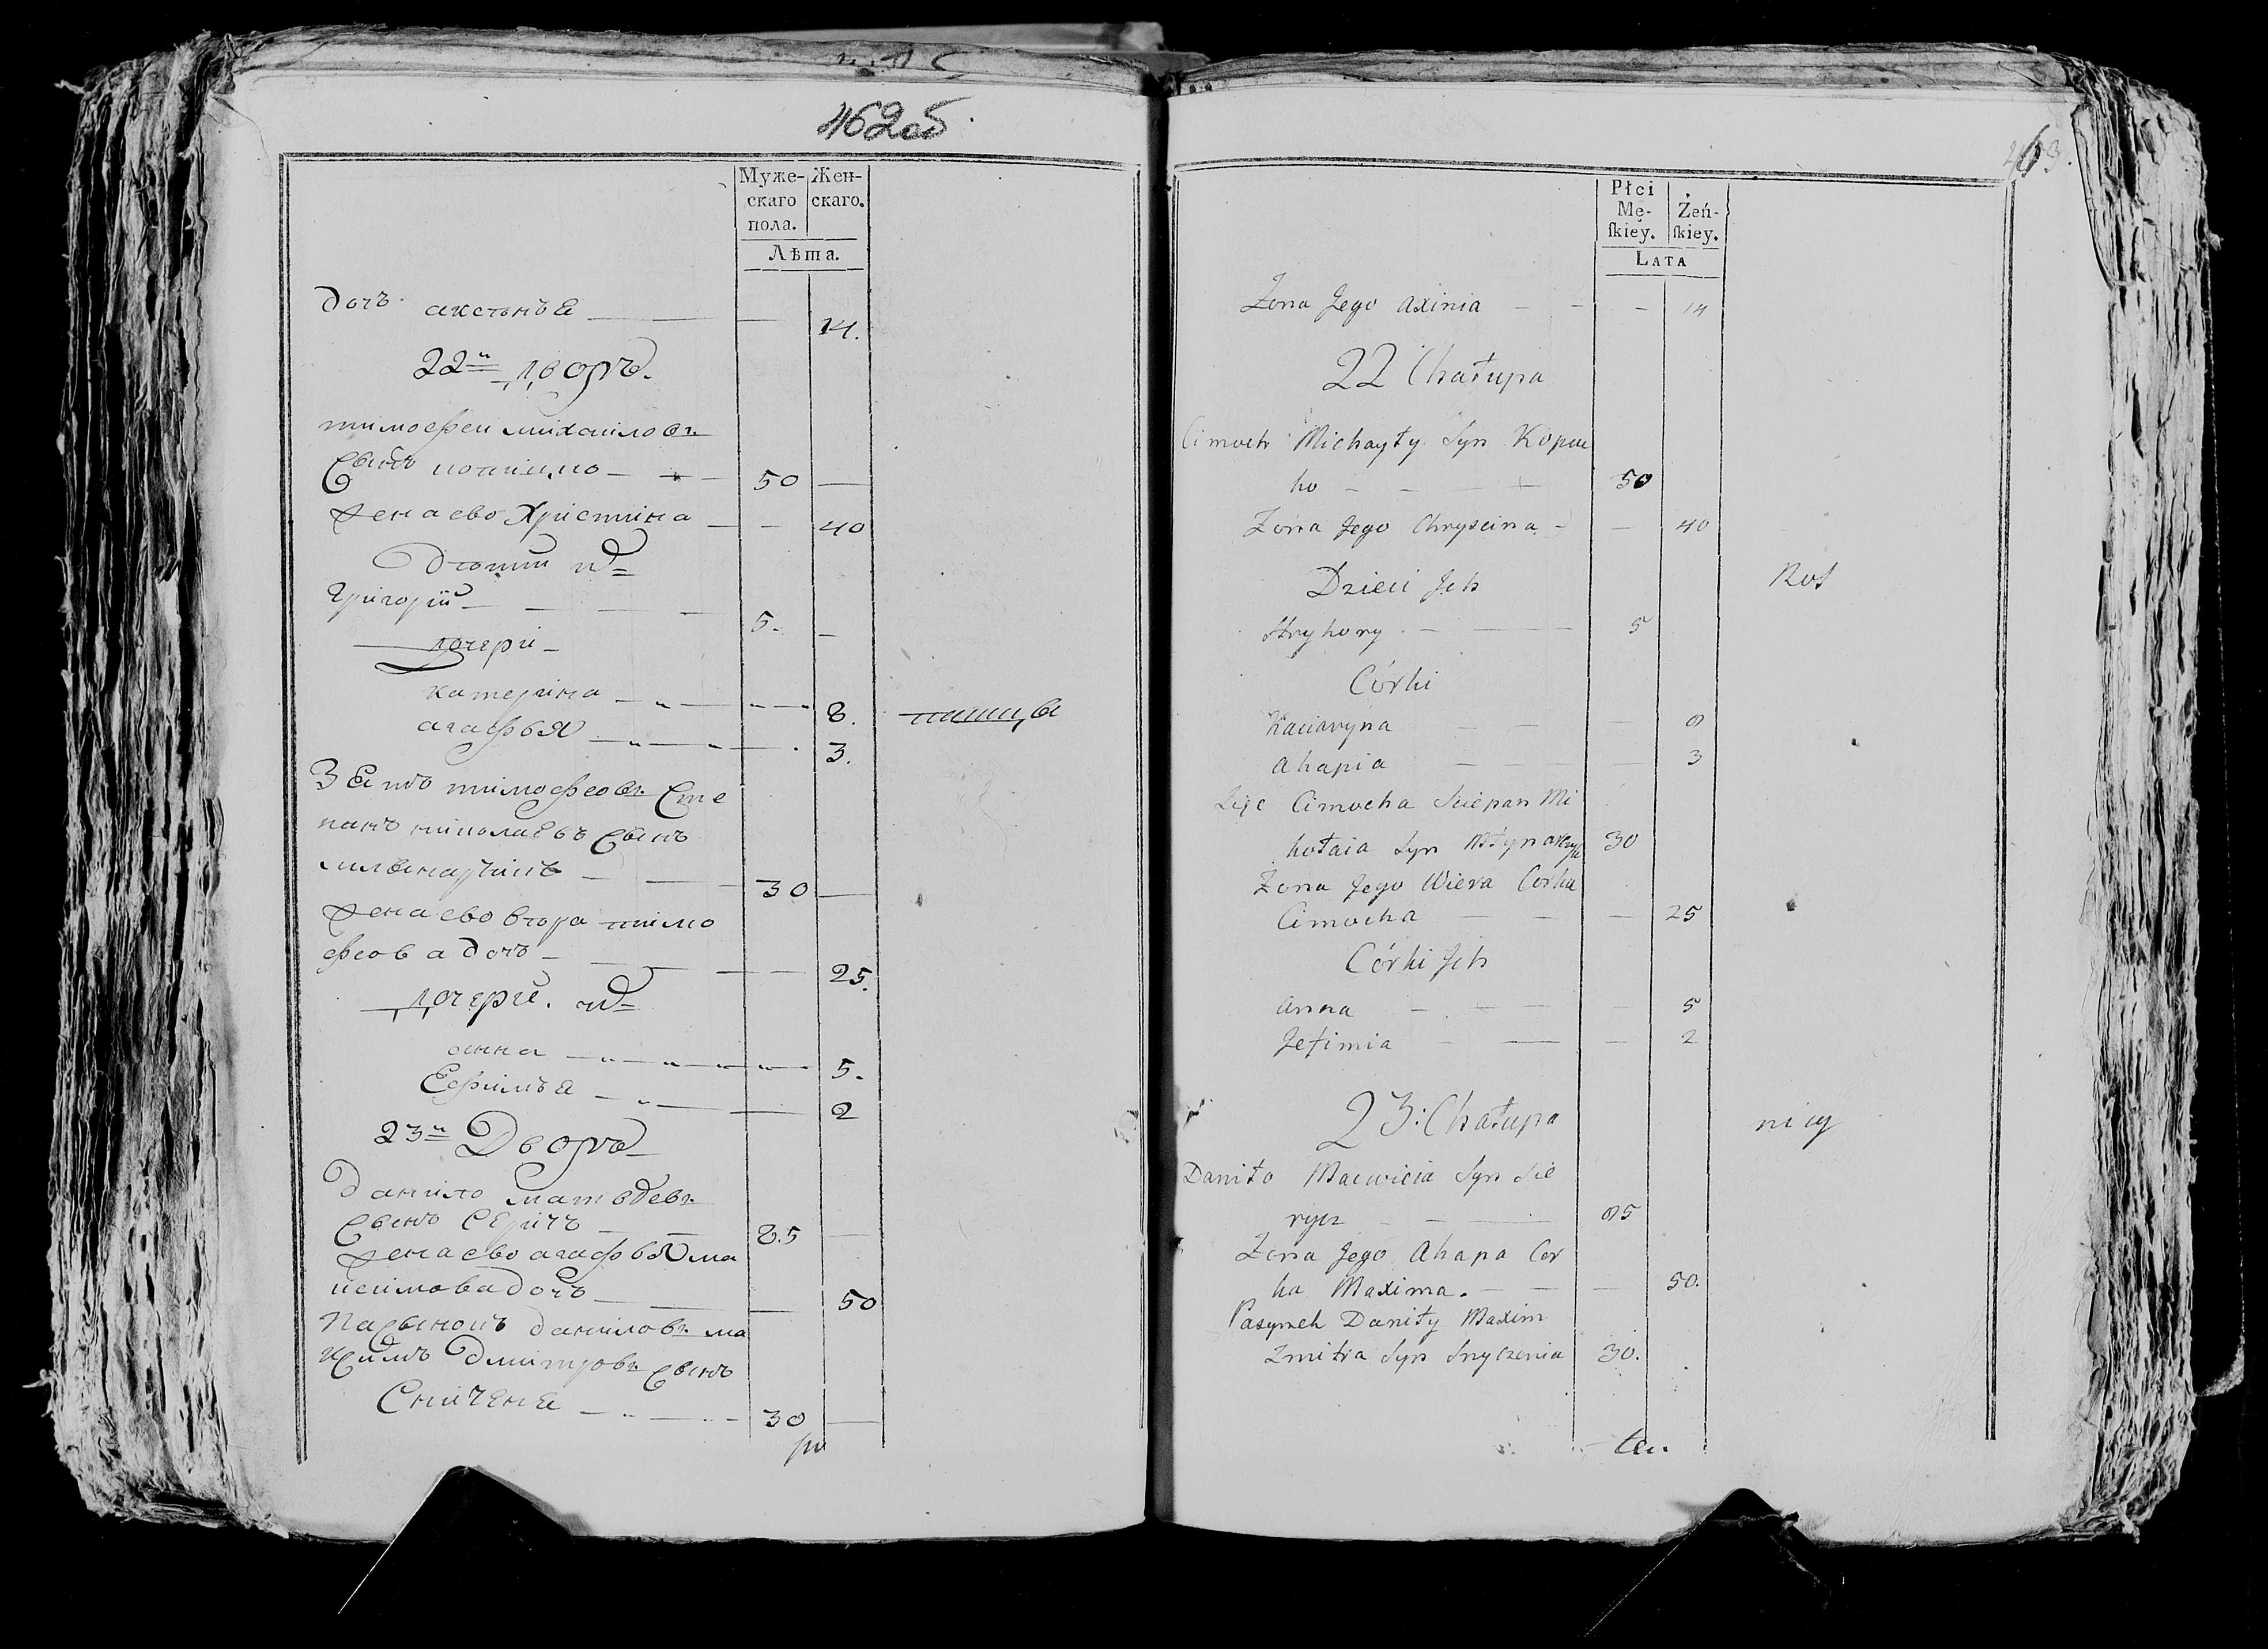 462об
Муже-
скаго
пола.
Жен-
скаго.
Лѣта.
дочъ аксѣнъѣ 14.
22й дворъ.
тимофеи михаиловъ
сынъ 50
жена ево Христина 40
их
Григорий 5.
дочери
катерина 8.
агафья 3.
Зѣть тимофеовъ Сте
панъ николаевъ сынъ
30
жена ево вѣра тимо
феова дочъ 25.
дочери их
анна 5.
Ефимъѣ 2
23й Дворъ
данило матвѣевъ
сынъ Серичъ 85
жена ево агафья ма
ксимова дочъ 50
Пасынокъ даниловъ ма
ксимъ дмитровъ сынъ
Сниченѣ 30
463.
Płci
Mę-
ſkiey.
Żeń-
ſkiey.
LATA
Zona Jego Axinia 14
22 Chałupa
Cimoch Michayły Syn Kopac
ko 50
Zona Jego Chryscina 40
Dzieci Jch
Hryhory 5
Córki
Kaciaryna 8
Ahapia 3
Zięc Cimocha Sciepan Mi
kołaia Syn 30
Zona Jego Wiera Corka
Cimocha 25
Córki Jch
Anna 5
Jefimia 2
23: Chałupa
Daniło Macwieia Syn Sie
rycz 85
Zona Jego Ahapa Cor
ka Maxima. 50.
Pasynek Daniły Maxim
Zmitra Syn Snyczenia 30.
Ros
nicy